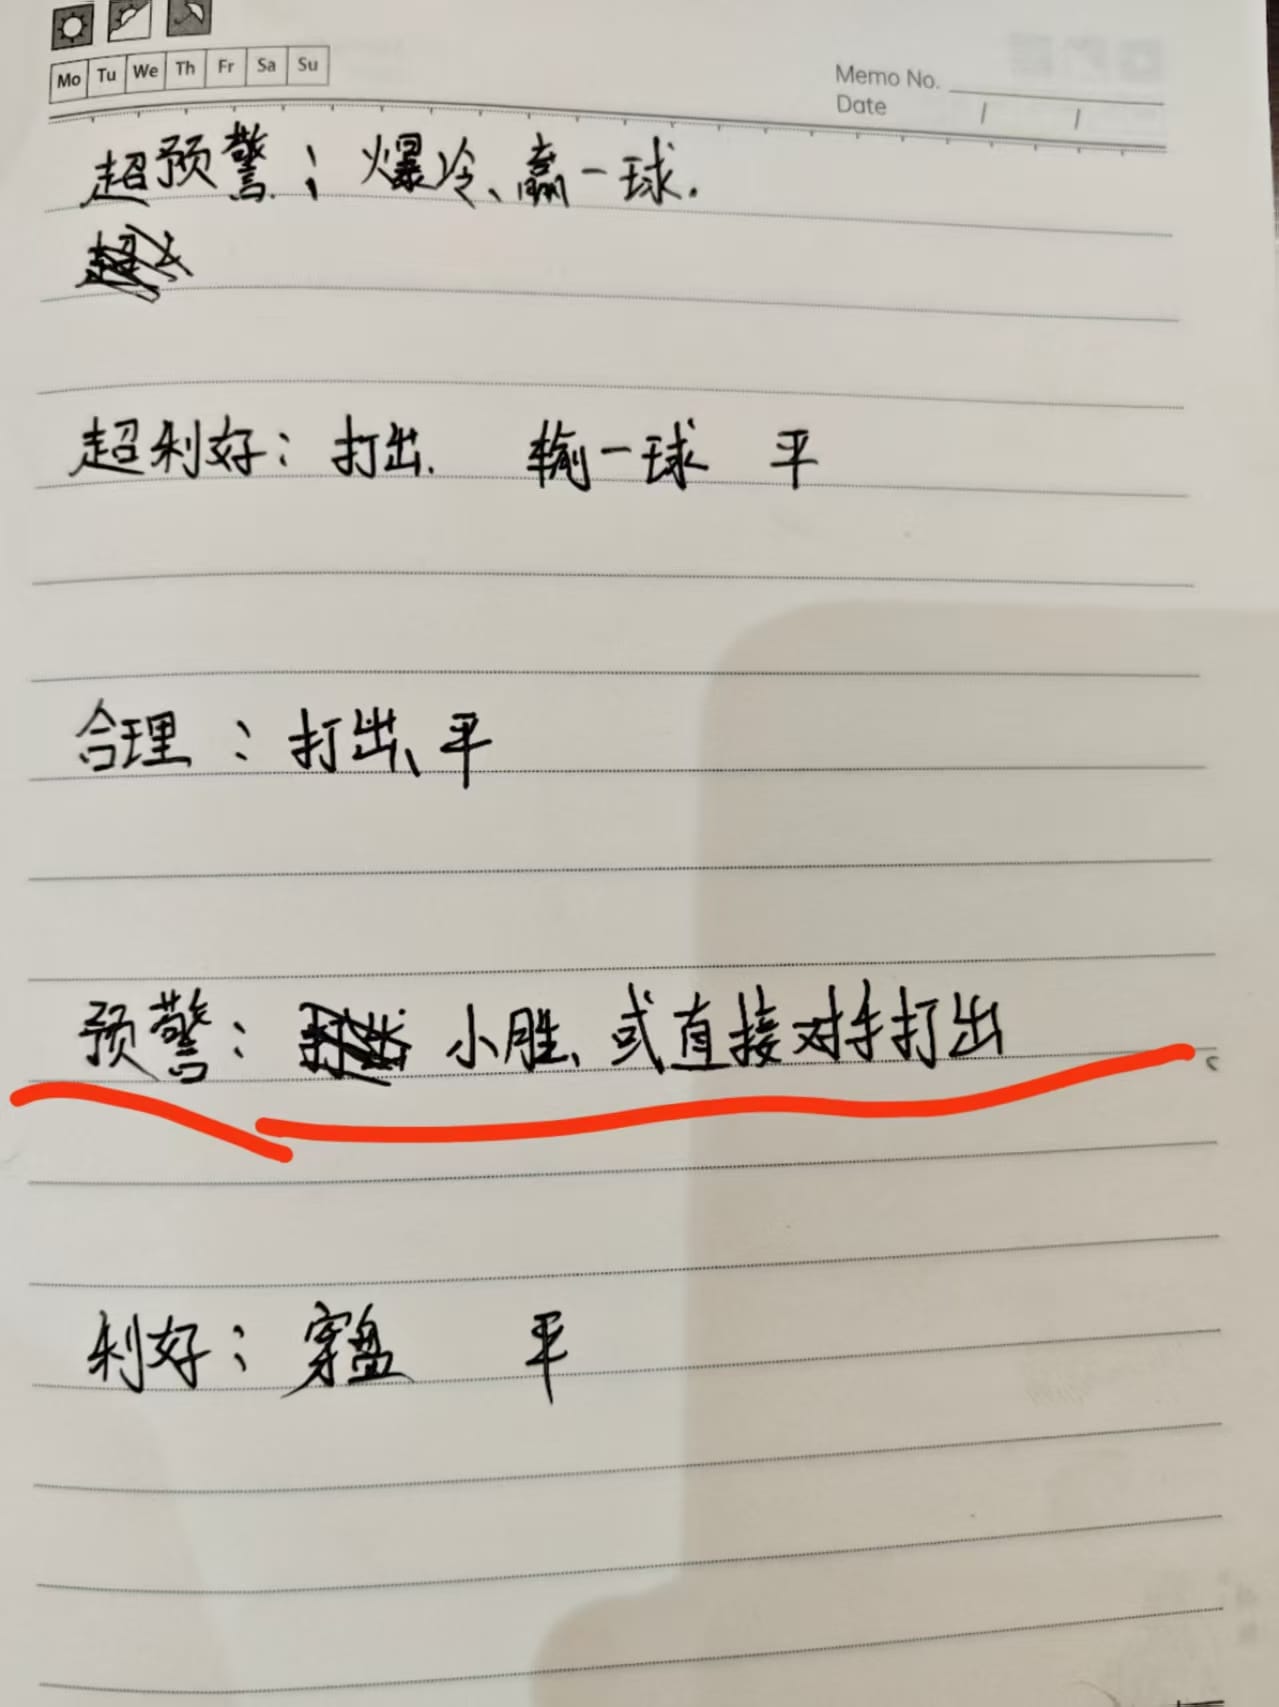 Mo Tu We Th Fr Sa Su
Memo No.
Date / /
超预警：爆冷、赢一球.
超利好：打出. 输一球 平
合理：打出、平
预警： 小胜、或直接对手打出
利好：穿盘 平